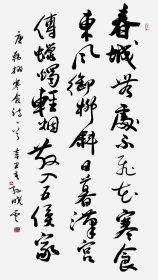 春城無處不飛花寒食
東風御柳斜日暮漢宮
傳蠟燭輕烟散入五侯家
唐韓翃寒食詩一首 孫曉雲